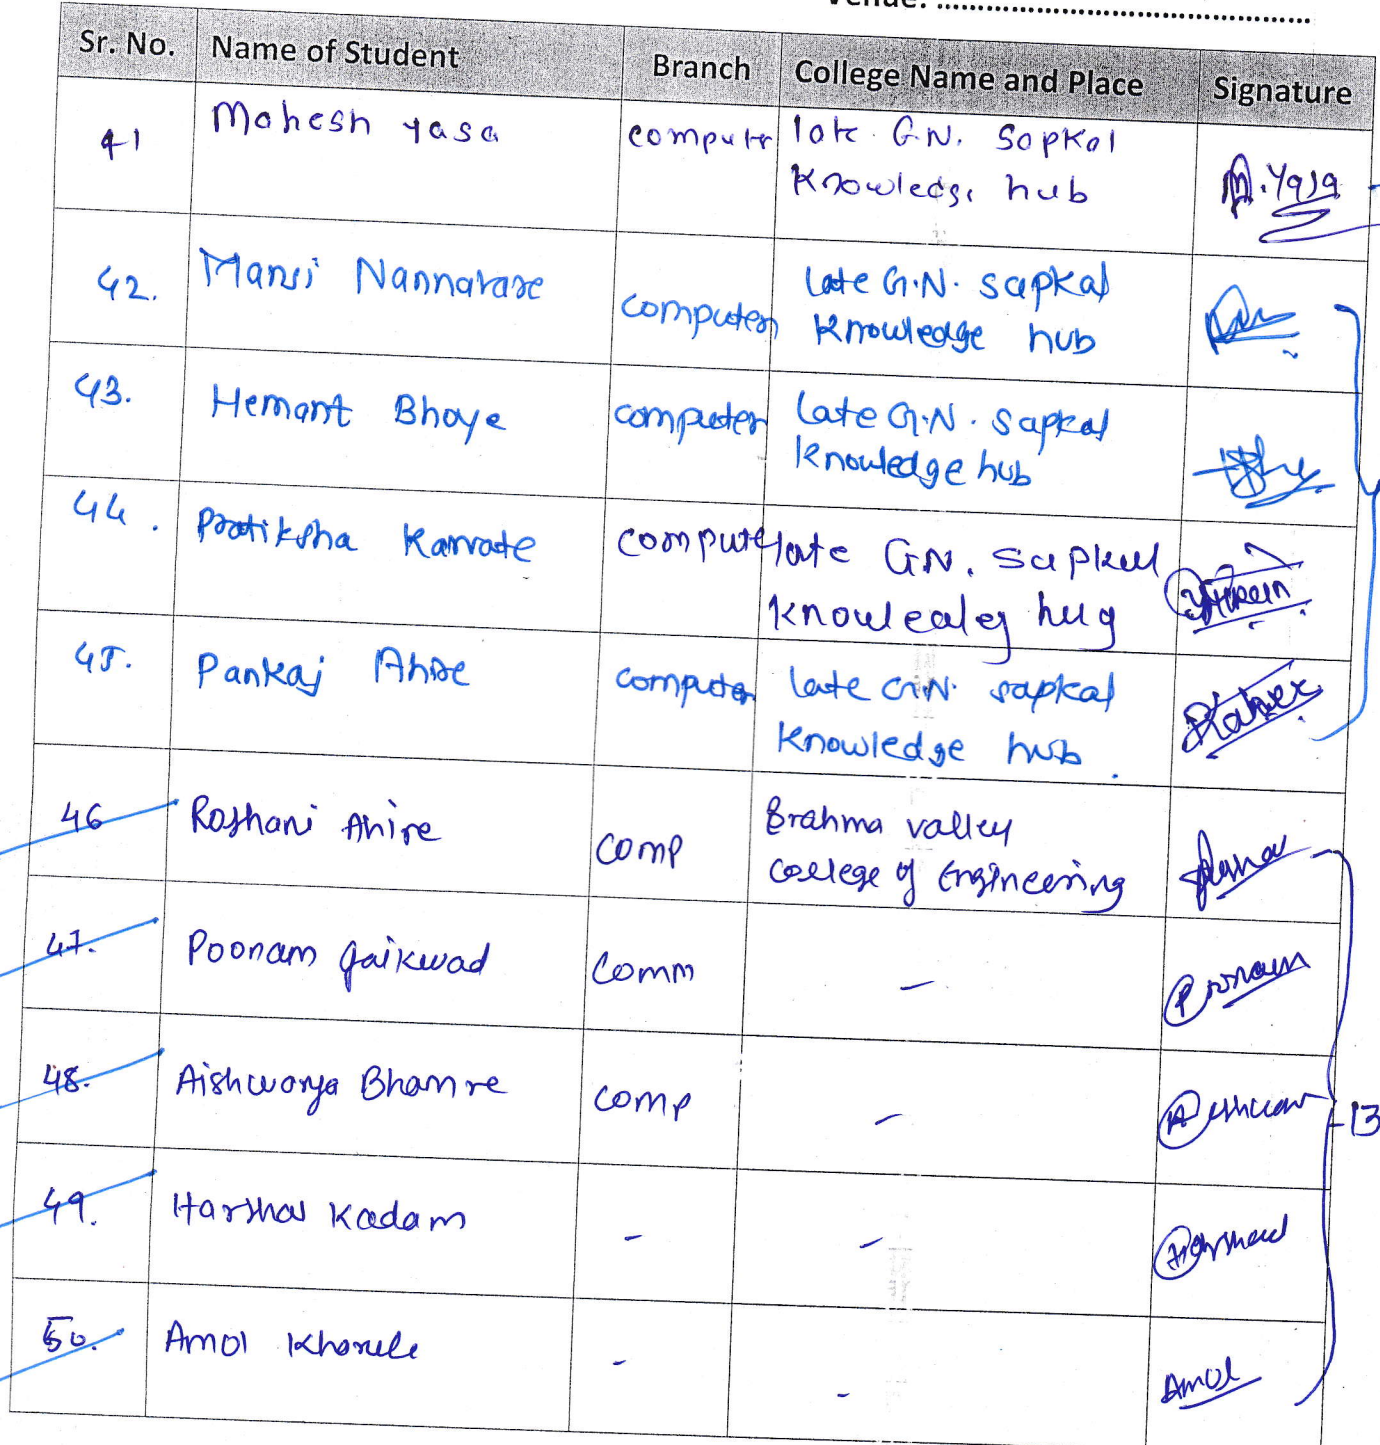 Venue: ..................................................
Sr. No. Name of Student Branch College Name and Place Signature
41 Mahesh yasa computr late G.N. Sapkal
Knowledge hub M.Yasa
42. Mansi Nannavare computer late G.N. sapkal
Knowledge hub
43. Hemant Bhoye computer late G.N. sapkal
knowledge hub
44. Pratiksha Kanvate compute late G.N. sapkul
knowlealeg hug
45. Pankaj Ahire computer late G.N. sapkal
Knowledge hub.
46 Roshani Ahire comp Brahma valley
College of Engineering
47. Poonam gaikwad Comm - Poonam
48. Aishwarya Bhamre comp - Aishwar
- 13
49. Harshal Kadam - - Harshal
50. Amol Kharule - - Amol